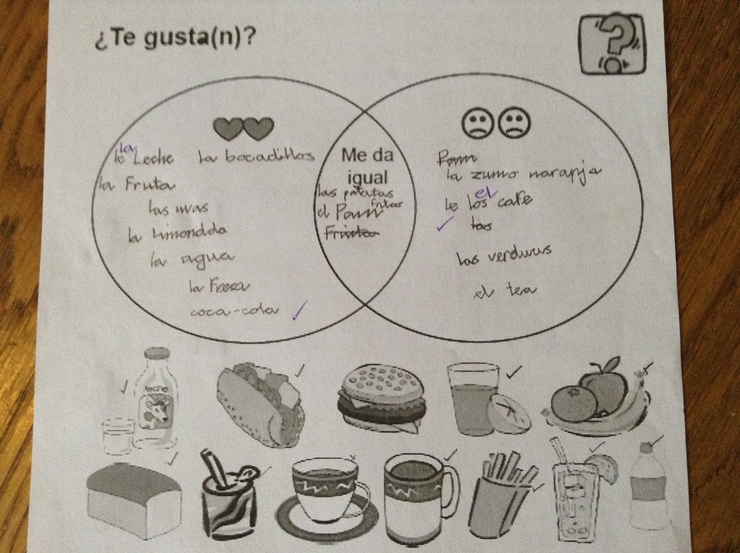 ¿Te gusta(n)?
?
la
le Leche la bocadillos
la Fruta
las uvas
la Limondda
la agua
la Fresa
coca-cola
Me da
igual
las patatas
fritas
el Pann
Frinta
Pann
la zumo naranja
el
le los cafe
las
las verduras
el tea
leche